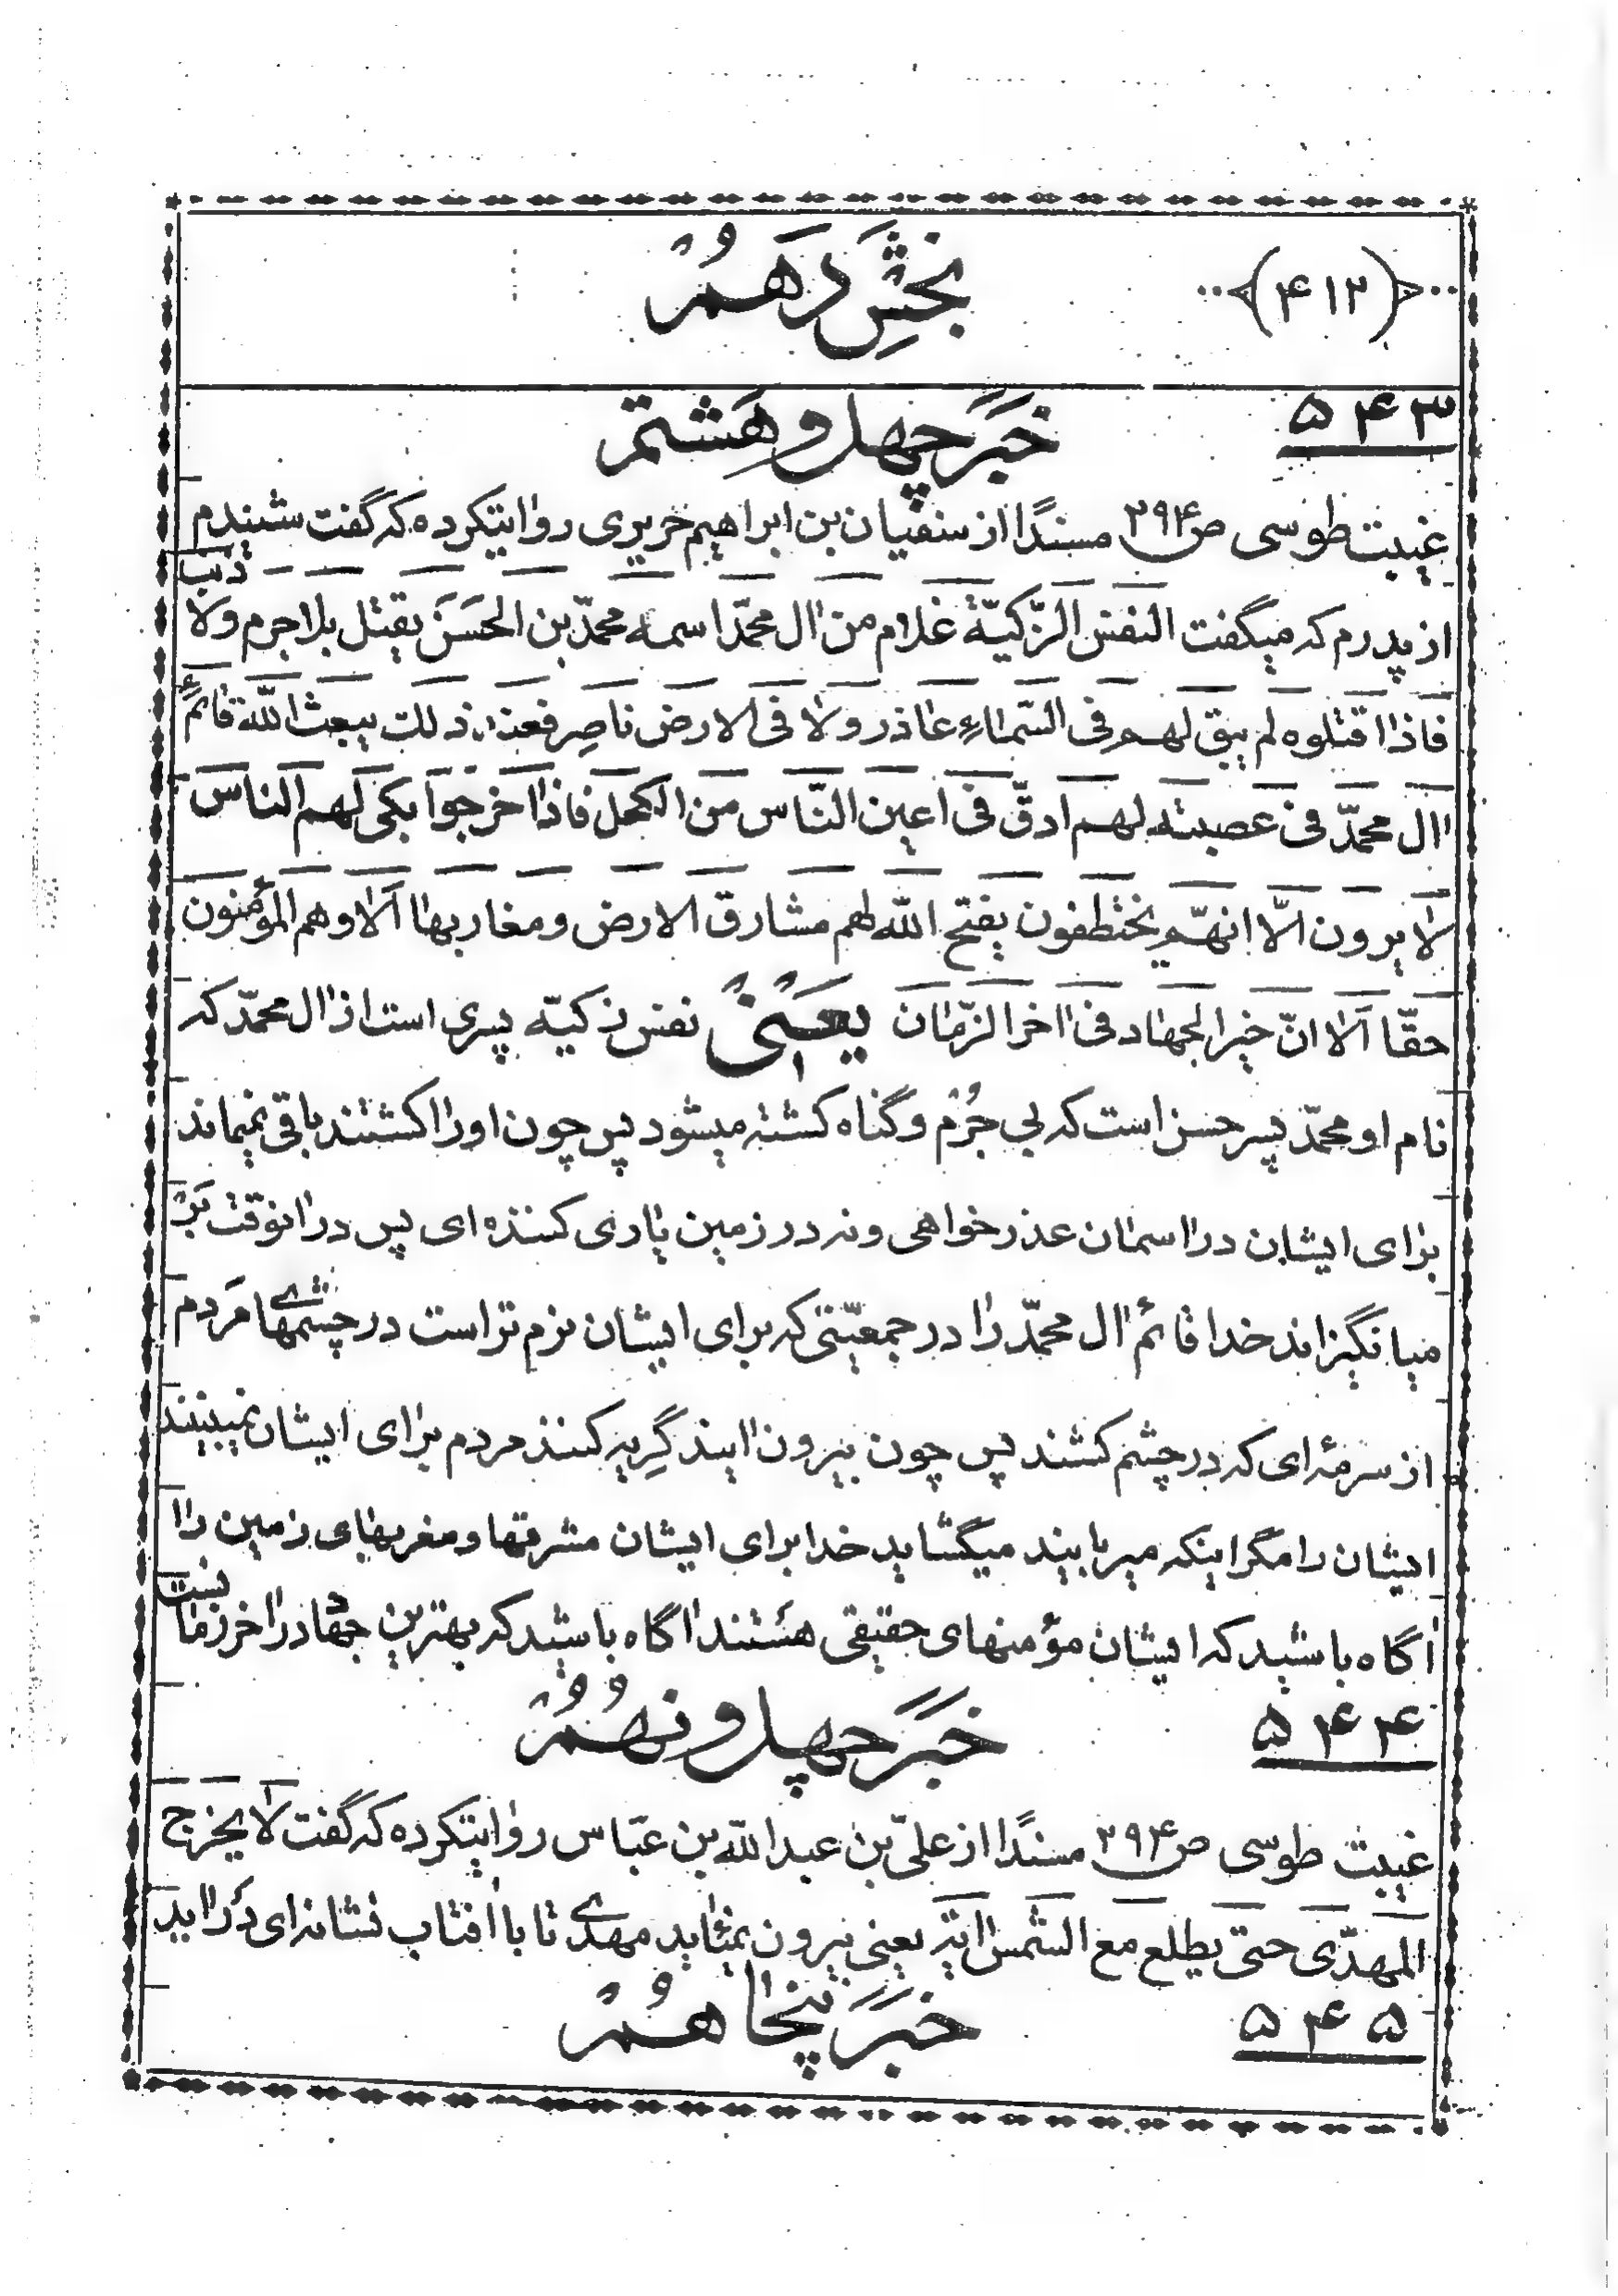 (۴۱۲)
بخشِ دَهُمُ
۵۴۳
خَبَرِ چهل و هَشتم
غیبت طوسی ص۲۹۴ مسندًا از سفیان بن ابراهیم حریری روایتکرده که گفت شنیدم
از پدرم که میگفت النفس الزّکیّة غلام من ال محمّد اسمه محمّد بن الحَسَن یقتل بلا جرم ولا ذنب
فاذا قتلوه لم یبق لهم فی السّماء عاذر ولا فی الارض ناصر فعند ذلک یبعث الله قائم
ال محمّد فی عصبته لهم ادقّ فی اعین النّاس من الکحل فاذا اخرجوا بکی لهم الناس
لا یرون الّا انهّم یختطفون یفتح الله لهم مشارق الارض و مغاربها اَلا وهم المؤمنون
حقّا اَلا انّ خیر الجهاد فی اخر الزّمان یعنی نفس زکیّه پسری است از ال محمّد که
نام او محمّد پسر حسن است که بی جُرُم و گناه کشته میشود پس چون او را کشتند باقی نمیماند
برای ایشان در اسمان عذر خواهی و نه در زمین یاری کننده ای پس در انوقت بَرُ
میانگیزاند خدا قائم ال محمّد را در جمعیّتی که برای ایشان نرم تر است در چشمهای مَردم
از سرمهٔ ای که در چشم کشند پس چون بیرون ایند گِریه کنند مردم برای ایشان نمیبینند
ایشان را مگر اینکه میربایند میگشاید خدا برای ایشان مشرقها و مغربهای زمین را
اگاه باشید که ایشان مؤمنهای حقیقی هستند اگاه باشید که بهترین جهاد در اخر زمان است
۵۴۴
خَبَرِ چهل و نهُمُ
غیبت طوسی ص۲۹۴ مسندًا از علیّ بن عبدالله بن عبّاس روایتکرده که گفت لا یخرج
المهدّی حتی یطلع مع الشمس ایة یعنی بیرون نمیاید مهدی تا با افتاب نشانه ای دَر اید
۵۴۵
خَبَر پَنجاهُمُ